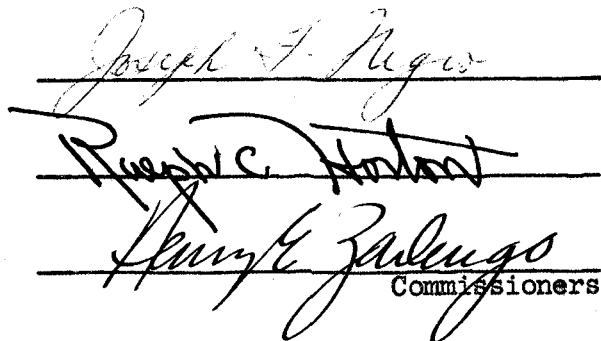 Joseph F. Nigro
Ralph C. Horton
Henry E. Zarlengo
Commissioners